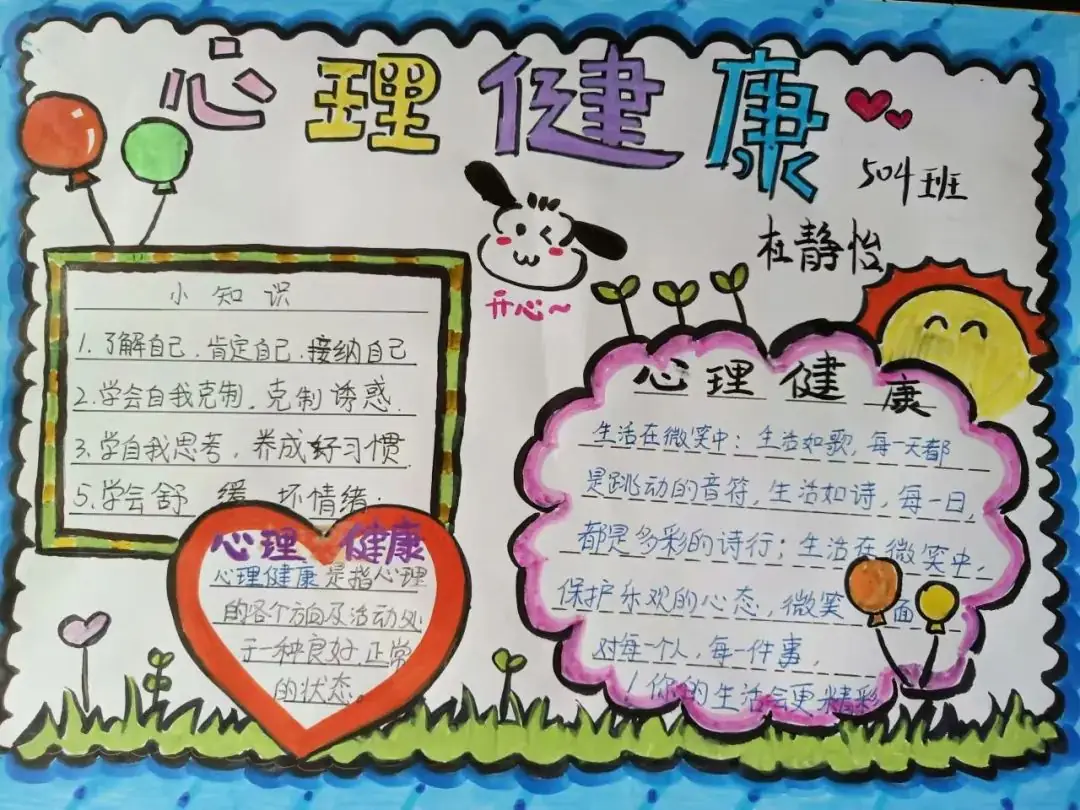 心理健康
504班
杜静怡
开心~
小知识
1.了解自己.肯定自己.接纳自己
2.学会自我克制.克制诱惑.
3.学自我思考.养成好习惯.
5.学会舒缓坏情绪.
心理健康
心理健康是指心理
的各个方面及活动处
于一种良好.正常
的状态。
心理健康
生活在微笑中:生活如歌,每一天都
是跳动的音符,生活如诗,每一日,
都是多彩的诗行;生活在微笑中,
保护乐观的心态,微笑面
对每一个人,每一件事,
!你的生活会更精彩